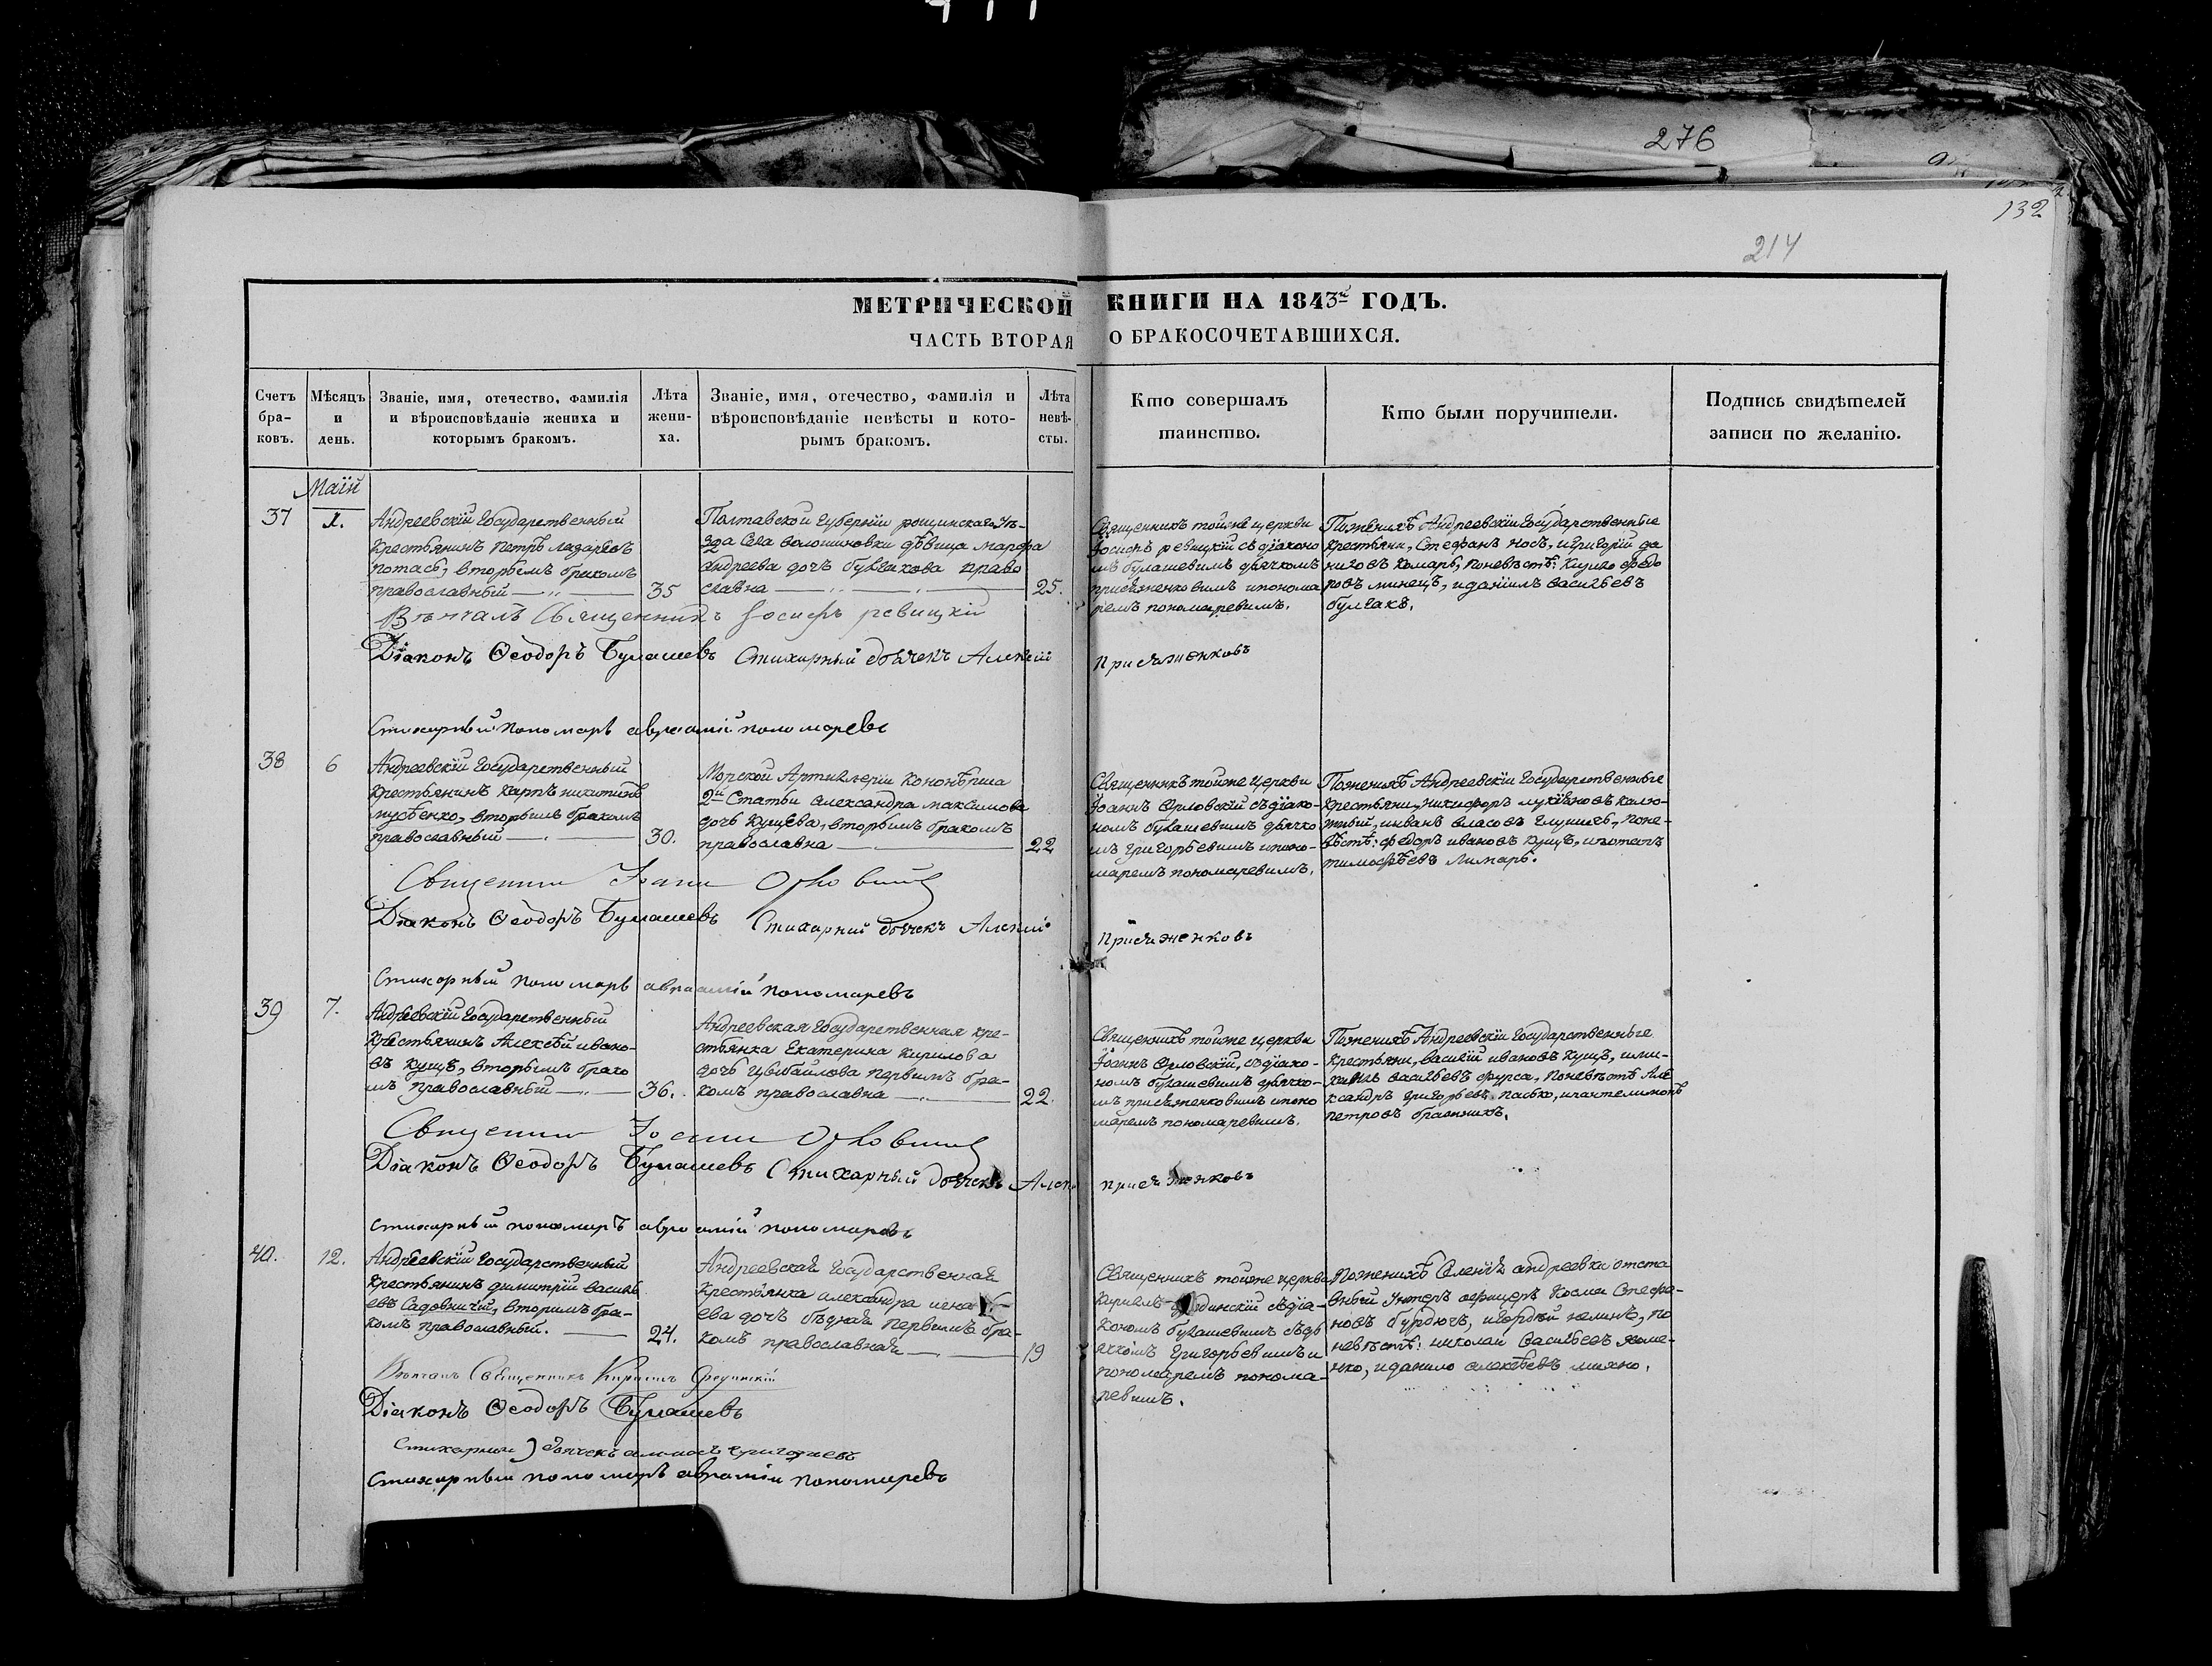 276
132
214
МЕТРИЧЕСКОЙ КНИГИ НА 1843й ГОДЪ.
ЧАСТЬ ВТОРАЯ О БРАКОСОЧЕТАВШИХСЯ.
Счетъ
бра-
ковъ.
Мѣсяцъ
и
день.
Званіе, имя, отечество, фамилія
и вѣроисповѣданіе жениха и
которымъ бракомъ.
Лѣта
жени-
ха.
Званіе, имя, отечество, фамилія и
вѣроисповѣданіе невѣсты и кото-
рымъ бракомъ.
Лѣта
невѣ-
сты.
Кто совершалъ
таинство.
Кто были поручители.
Подпись свидѣтелей
записи по желанію.
Маій
37
1.
Андреевскій Государственный
Крестьянинъ Петръ Лазаревъ
Потасъ, вторымъ бракомъ
православный
35
Полтавской Губерніи Уѣ-
зда Села Волошиновки дѣвица Марфа
Андреева дочь Булгакова право
славна
25.
Священникъ тойже церкви
Іосифъ Ревицкій съ діаконо
мъ Булашевимъ дьячкомъ
Присяженковимъ и понома
ремъ Пономаревимъ.
По женихѣ Андреевскіи Государственные
Крестьяни, Стефанъ Носъ, и Григорій Да
ниловъ Комаръ, по невѣстѣ: Федо
ровъ Минецъ, и Даніилъ Васильевъ
Булгакъ.
Вѣнчалъ Священникъ Іосифъ Ревицкій
Діаконъ Ѳеодоръ Булашевъ Стихарный дьячекъ Алексій Присяженковъ
Стихарный пономарь Авраамій Пономаревъ
38
6
Андреевскій Государственный
Крестьянинъ Карпъ Никитинъ
Мусѣенко, вторымъ бракомъ
православный
30.
Морской Артиллеріи Кононѣрша
2й Статьи Александра Максимова
дочь Кущева, вторымъ бракомъ
православна
22
Священникъ тойже Церкви
Іоаннъ Орловскій съ діако-
номъ Булашевимъ дьячко
мъ Григорьевимъ и поно-
маремъ Пономаревимъ.
По женихѣ Андреевскіи Государственные
Крестьяни, Никифоръ Калю-
жный, и Иванъ Власовъ по не-
вѣстѣ: Федоръ Ивановъ Кущъ, и Потапъ
Тимофѣевъ Лимарь.
Священникъ Іоаннъ Орловскій
Діаконъ Ѳеодоръ Булашевъ Стихарний дьячекъ Алексій Присяженковъ
Стихарный пономарь Авраамій Пономаревъ
39
7.
Андреевскій Государственный
Крестьянинъ Алексѣй Ивано-
въ Кущъ, вторымъ брако
мъ православный
36.
Андреевская Государственная Кре-
стьянка Екатерина Кирилова
дочь первимъ бра-
комъ православна
22.
Священникъ тойже церкви
Іоаннъ Орловскій, съ діако-
номъ Булашевимъ дьячко-
мъ Присяженковимъ и поно
маремъ Пономаревимъ.
По женихѣ Андреевскіи Государственные
Крестьяни, Василій Ивановъ Кущъ, и Ми-
хаилъ Васильевъ Фурса, по невѣстѣ Але
ксандръ Григорьевъ Пасько, и Пантелимонъ
Петровъ
Священникъ Іоаннъ Орловскій
Діаконъ Ѳеодоръ Булашевъ Стихарный дьячекъ Алек. Присяженковъ
Стихарный пономарь Авраамій Пономаревъ
40.
12.
Андреевскій Государственный
Крестьянинъ Димитрій Василь
евъ Садовничій, вторимъ бра-
комъ православный.
24.
Андреевская Государственная
Крестьянка Александра
ева дочь Бѣдная первимъ бра-
комъ православная
19
Священникъ тойже церкви
Кириллъ съ діа-
кономъ Булашевимъ съ дь
ячкомъ Григорьевимъ и
пономаремъ Понома-
ревимъ.
По женихѣ Селенія Андреевки отста
вный Унтеръ офицеръ Косма Стефа-
новъ Бурдючъ, по
невѣстѣ: Николай Васильевъ
и Данило Алексѣевъ Михно.
Вѣнчалъ Священникъ Кириллъ
Діаконъ Ѳеодоръ Булашевъ
Стихарный дьячекъ Григорьевъ
Стихарный пономарь Авраамій Пономаревъ